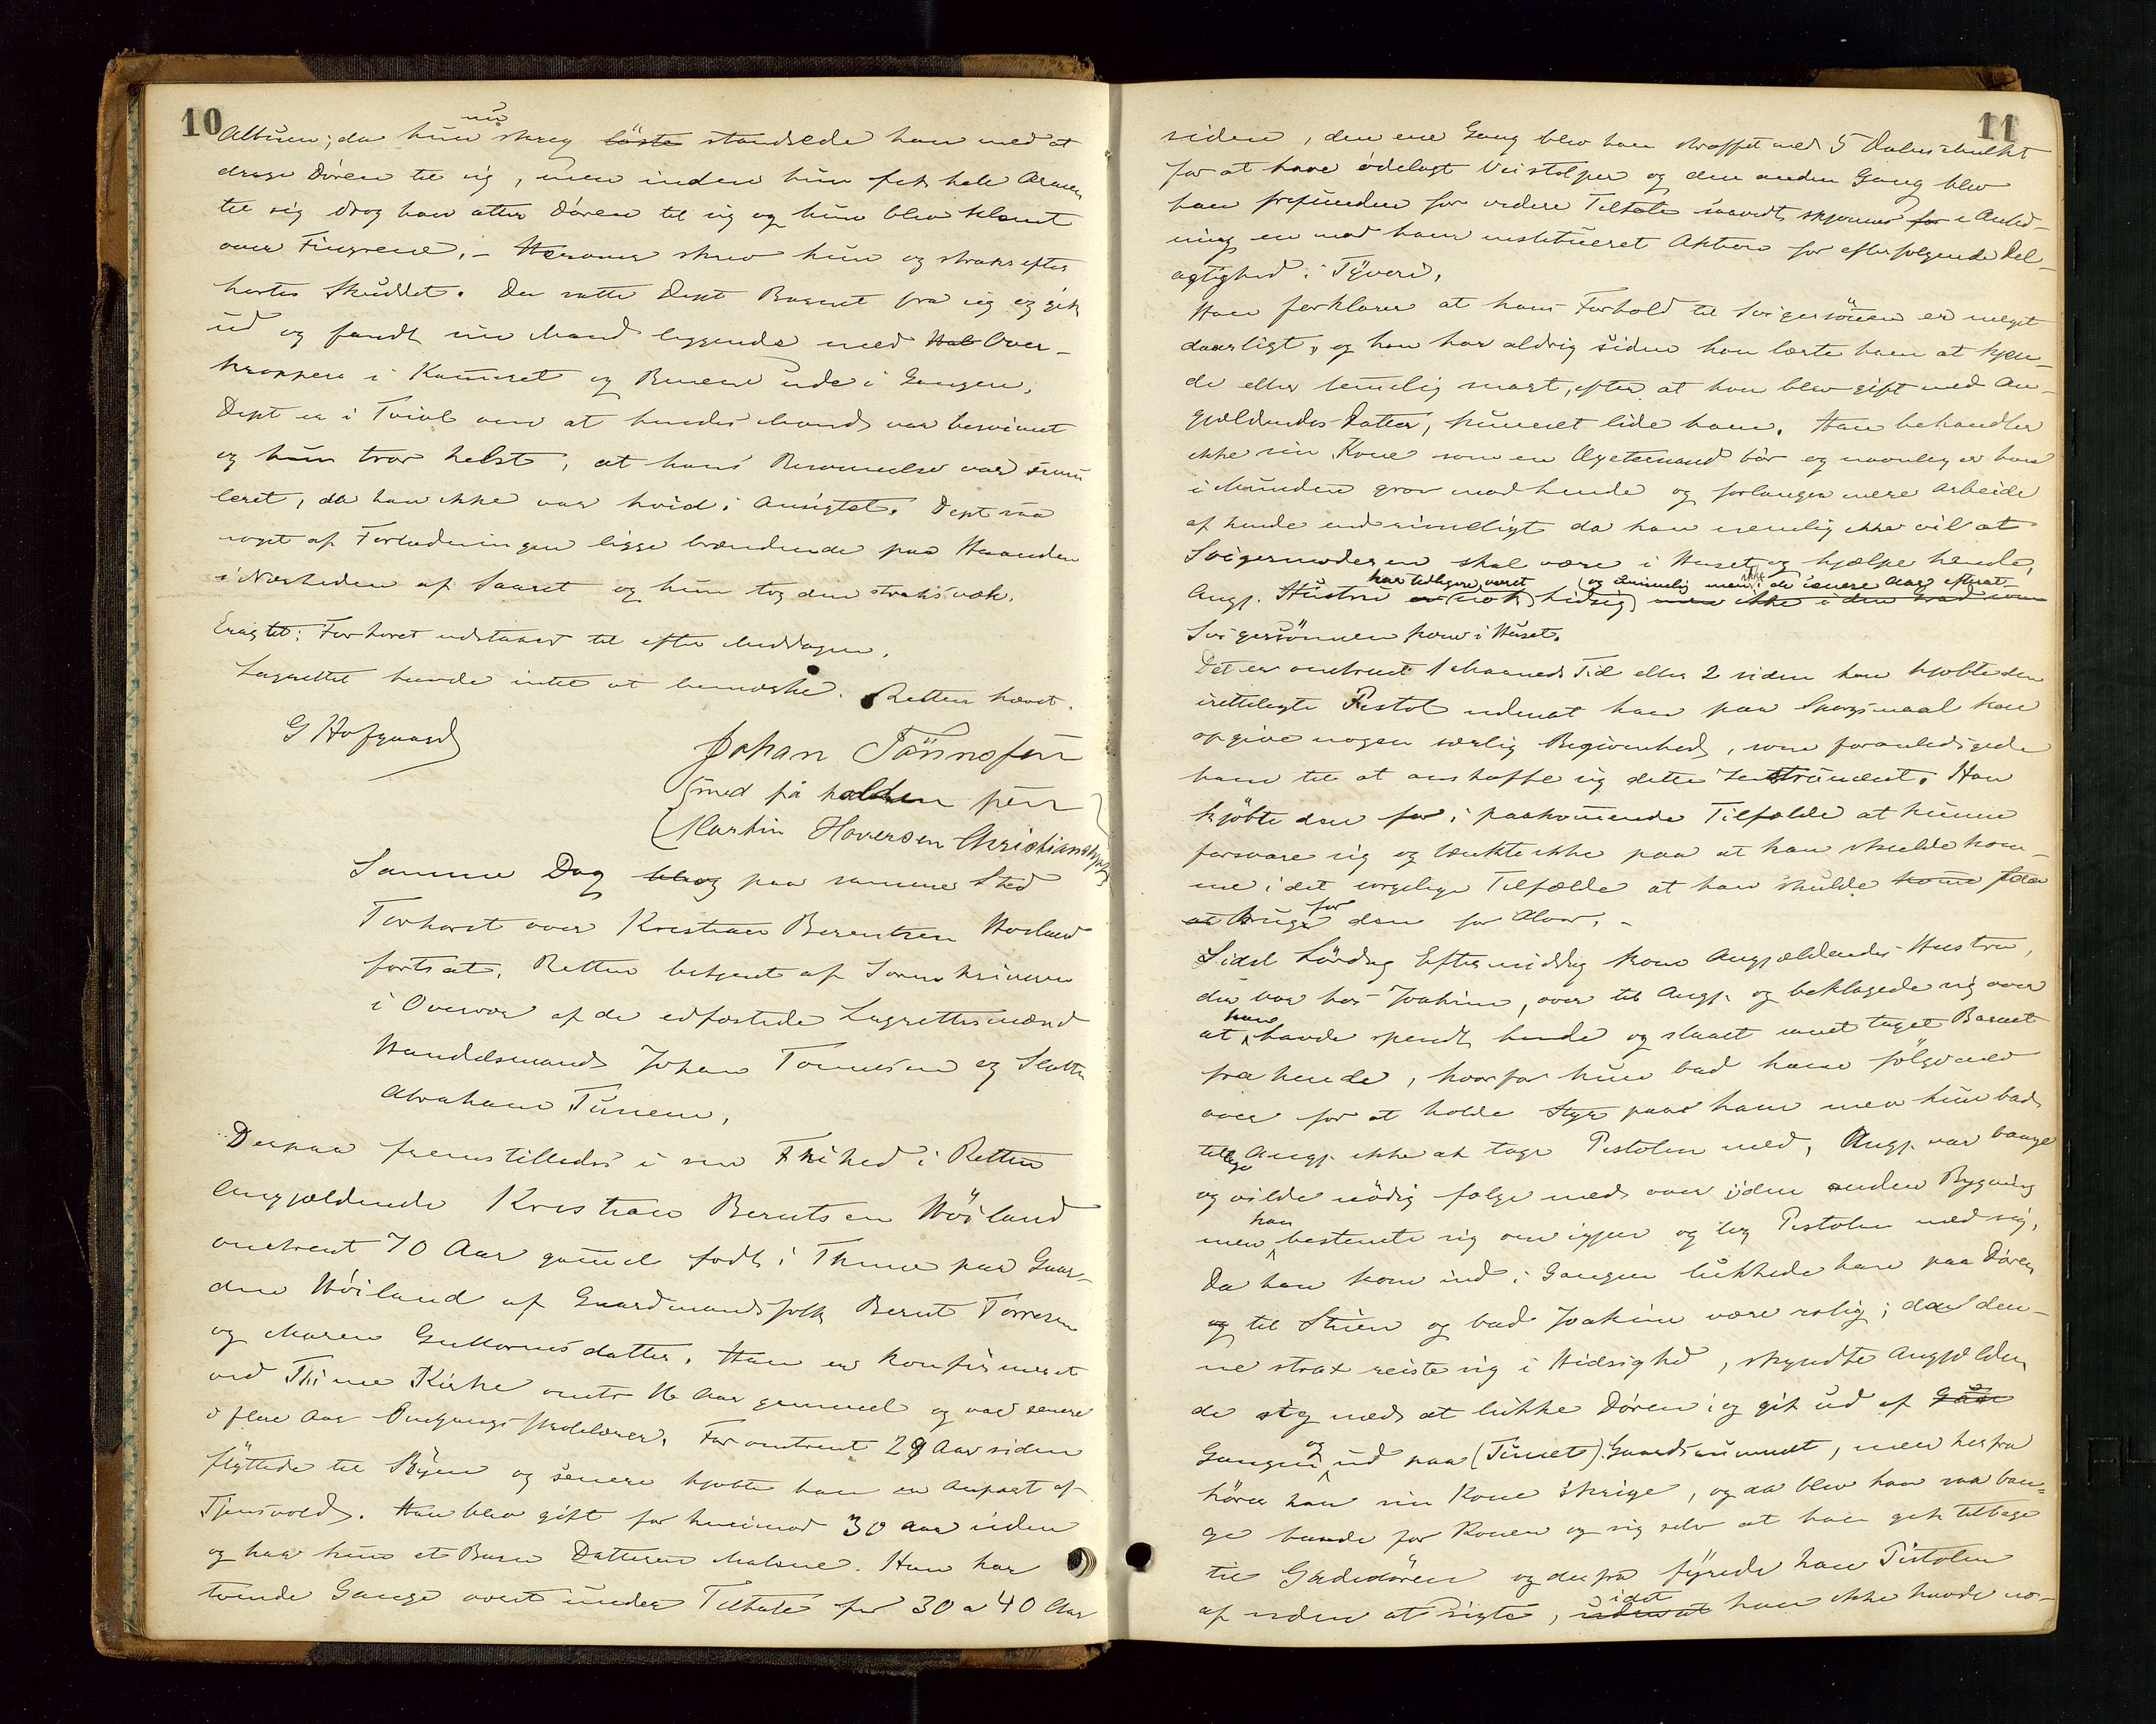 10
Albuen; da hun nu skreg løste standsede han med at
drage Døren til sig, men inden hun fik hele Armen
til sig drog han atter Døren til sig og hun blev klemt
over Fingrene. – Herover skrev hun og straks efter
hørtes Skuddet. Da satte Dept Barnet fra sig og gik
ud og fandt sin Mand liggende med Hal Over-
kroppen i Kammeret og Benene ude i Gangen.
Dept er i Tvivl om at hendes Mand var besvimet
og hun tror helst, at hans Besvimelse var simu
leret, da han ikke var hvid i Ansigtet. Dept saa
noget af Forladningen ligge brændende paa Haanden
i Nærheden af Saaret og hun tog den straks væk.
Eragtet: Forhøret udstaaer til efter Middagen.
Lagrettet havde intet at bemærke. Retten hævet.
G Hofgaard
Johan Tönnesen
med på holden pen
Martin Haversen Christians
Samme Dag blev paa samme Sted
Forhøret over Kristian Berentsen Høiland
fortsat. Retten betjent af Sorenskriveren
i Overvær af de edfæstede Lagrettesmænd
Handelsmand Johan Tønnesen og Slatter
Abraham Tunem.
Derpaa fremstilledes i sin Frihed i Retten
Angjældende Kristian Berntsen Höiland
omtrent 70 Aar gammel født i Thime paa Gaar-
den Høiland af Gaardmandsfolk Bernt Torresen
og Maren Guttormsdatter. Han er konfirmeret
ved Thime Kirke omtr 16 Aar gammel og var senere
i flere Aar Omgangsskolelærer. For omtrent 29 Aar siden
flyttede til Byen og senere kjøbte han en Anpart af
Tjensvold. Han blev gift for henimod 30 Aar siden
og har kun et Barn Datteren Malene. Han har
tvende Gange været under Tiltale for 30 a 40 Aar
11
siden, den ene Gang blev han straffet med 5 Dalers Mulkt
for at have ødelagt Veistolper og den anden Gang blev
han frifunden for videre Tiltale saavidt skjønnes for i Anled-
ning en mod ham institueret Aktion for efterfølgende Del-
agtighed i Tyveri.
Han forklarer at hans Forhold til Svigersönnen er meget
daarligt, og han har aldrig siden han lærte ham at kjen-
de eller temmelig snart, efter at han blev gift med An-
gjældendes Datter, kunnet lide ham. Han behandler
ikke sin Kone som en Ægtemand bør og navnlig er han
i Munden grov mod hende og forlanger mere Arbeide
af hende end rimeligt da han nemlig ikke vil at
Svigermoderen skal være i Huset og hjælpe hende,
har tidligere været (og temmelig men ikke i de senere Aar efterat
Angj. Hustru er (nok) hidsig) men ikke i den Grad som
Svigersönnen kom i Huset.
Det er omtrent 1 Maaneds Tid eller 2 siden han kjøbte den
irettelagte Pistol uden at han paa Spørgsmaal kan
opgive nogen særlig Begivenhed, som foranledigede
ham til at anskaffe sig dette Instrument. Han
kjøbte den for i paakommende Tilfælde at kunne
forsvare sig og tænkte ikke paa at han skulde kom-
me i det sørgelige Tilfælde at han skulde komme
at bruge for den for Alvor. –
Sidst Lördag Eftermiddag kom Angjældendes Hustru,
der var hos Joakim, over til Angj. og beklagede sig over
at han havde spendt hende og slaaet samt taget Barnet
fra hende, hvorfor hun bad ham følge med
over for at holde Styr paa ham men hun bad
tillige Angj. ikke at tage Pistolen med, Angj. var bange
og vilde nödig følge med over i den anden Bygning
men han bestemte sig om igjen og tog Pistolen med sig.
Da han kom ind i Gangen lukkede han paa Døren
og til Stuen og bad Joakim være rolig; da den-
ne strax reiste sig i Hidsighed, skyndte Angjælden
de sig med at lukke Døren i og gik ud af Gan
Gangen og ud paa (Tunet) Gaardsrummet, men herfra
hörer han sin Kone skrige, og da blev han saa ban-
ge baade for Konen og sig selv at han gik tilbage
til Gadedøren og derfra fyrede han Pistolen
af uden at sigte, uden at idet han ikke havde no-